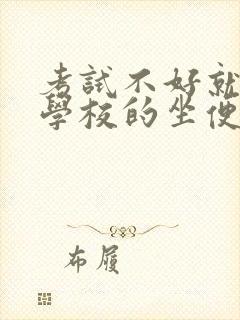 考試不好就
學校的坐便
布履